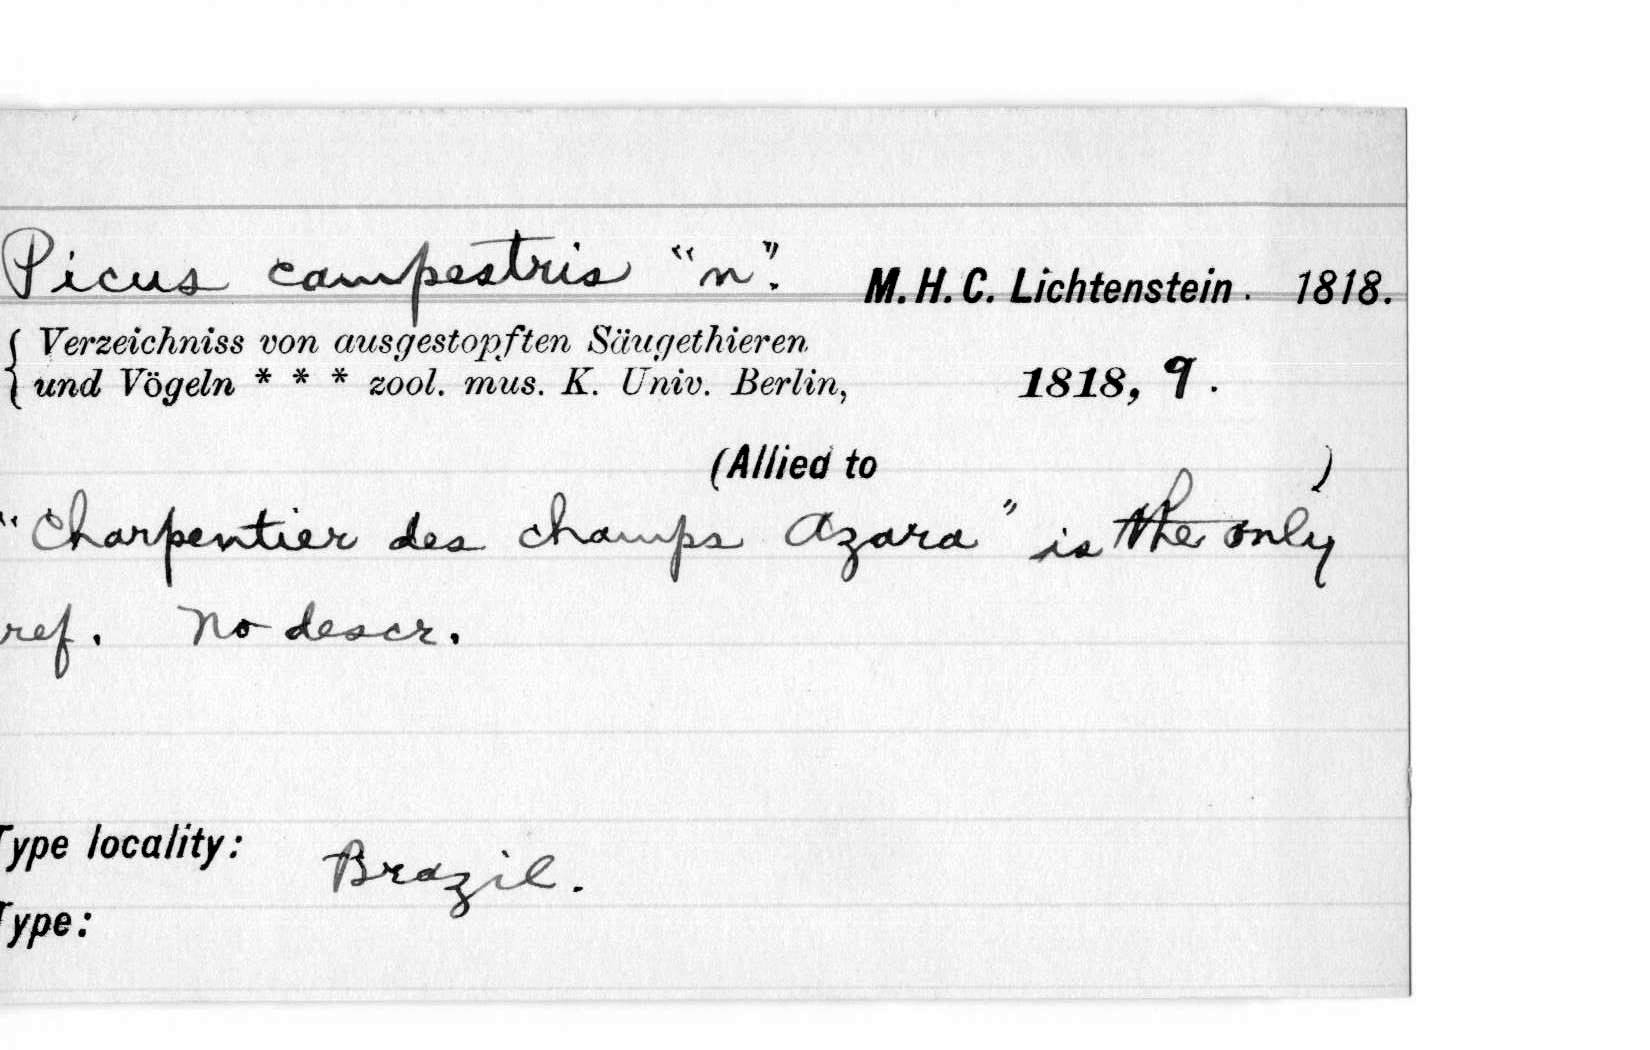 Picus campestris “n”. M. H. C. Lichtenstein. 1818.
Verzeichniss von ausgestopften Säugethieren
und Vögeln * * * zool. mus. K. Univ. Berlin, 1818, 9.
(Allied to )
“Charpentier des champs Azara” is the only
ref. No descr.
Type locality: Brazil.
Type: